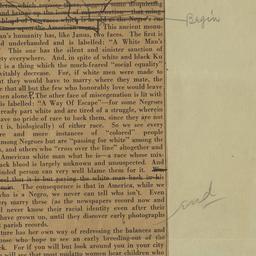 Begin
This ancient moun-
an's humanity has, like Janus, two faces. The first is
d underhanded and is labelled: "A White Man's
This one has the silent and sinister sanction of
ety everywhere. And, in spite of white and black Ku
t is a thing which the much-feared "social equality"
vitably decrease. For, if white men were made to
at they would have to marry where they mate, the
e that all but the few who honorably love would leave
men alone. The other face of miscegenation is lit with
is labelled: "A Way Of Escape"—for some Negroes
ready part white and are tired of a struggle, wherein
ave no pride of race to back them, since they are not
t is, biologically) of either race. So we see every
re and more instances of "colored" people
mong Negroes but are "passing for white" among the
, and others who "cross over the line" altogether and
American white man what he is—a race whose mix-
ack blood is largely unknown and unsuspected. And
inded person can very well blame them for it.
eel that it is but paying the white man back in his
The consequence is that in America, while we
who is a Negro, we never can tell who isn't. Even
ery marry these (as the newspapers record now and
l never know their racial identity even after their
have grown up, until they discover early photographs
parish records.
ture has her own way of redressing the balances and
ose who hope to see an early breeding-out of the
ck. For if will but look around you in your city
will see that most mulatto women bear children who
end